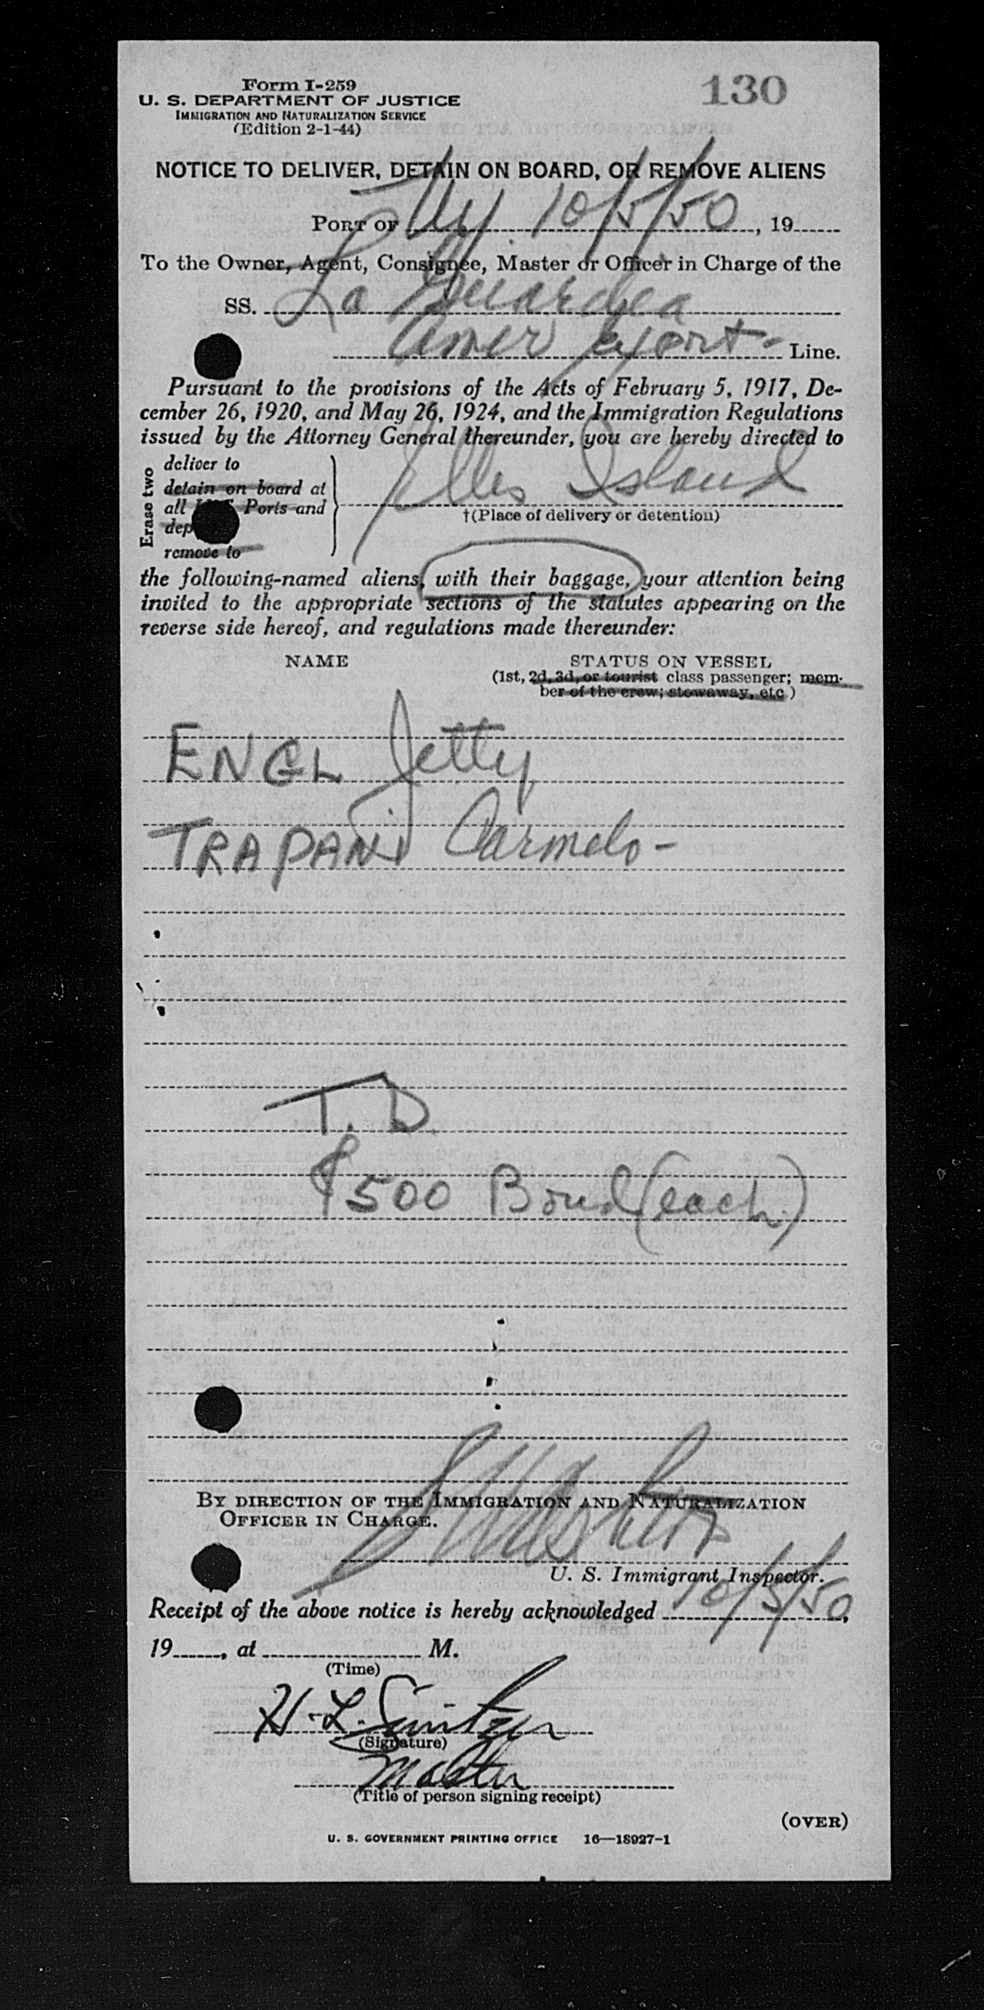 130
Form I-259
U. S. DEPARTMENT OF JUSTICE
IMMIGRATION AND NATURALIZATION SERVICE
(Edition 2-1-44)
NOTICE TO DELIVER, DETAIN ON BOARD, OR REMOVE ALIENS
PORT OF NY. 10/5/50, 19
To the Owner, Agent, Consignee, Master or Officer in Charge of the
SS. La Guardia
Amer Export- Line.
Pursuant to the provisions of the Acts of February 5, 1917, De-
cember 26, 1920, and May 26, 1924, and the Immigration Regulations
issued by the Attorney General thereunder, you are hereby directed to
Erase two
deliver to
detain on board at
all Ports and
dep
remove to
Ellis Island
†(Place of delivery or detention)
the following-named aliens, with their baggage, your attention being
invited to the appropriate sections of the statutes appearing on the
reverse side hereof, and regulations made thereunder:
NAME STATUS ON VESSEL
(1st, 2d, 3d, or tourist class passenger; mem-
ber of the crew; stowaway, etc.)
ENGL Jetty
TRAPANI Carmelo-
T.D.
$500 Bond (each)
BY DIRECTION OF THE IMMIGRATION AND NATURALIZATION
OFFICER IN CHARGE.
U. S. Immigrant Inspector.
Receipt of the above notice is hereby acknowledged 10/5/50,
19, at M.
(Time)
H. L.
(Signature)
Master
(Title of person signing receipt)
(OVER)
U. S. GOVERNMENT PRINTING OFFICE 16—18927-1